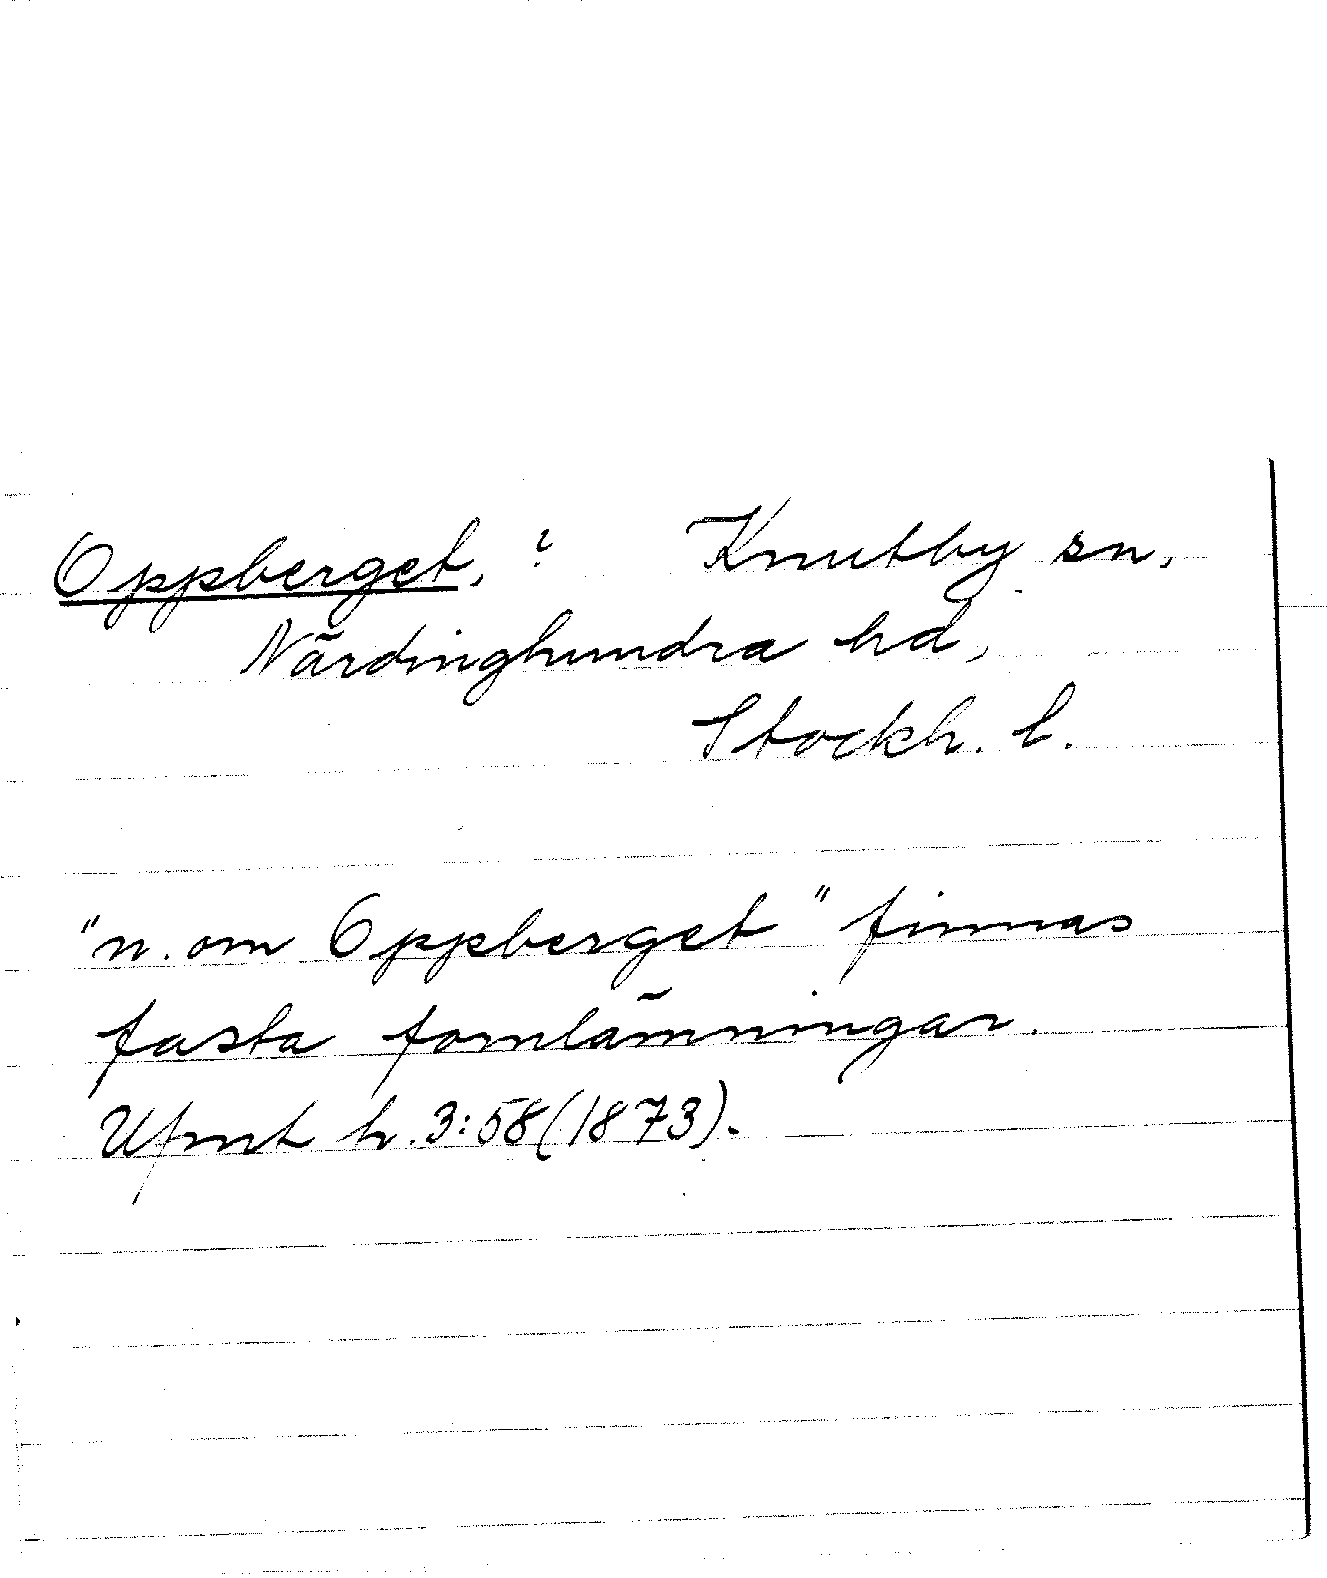 Oppberget, ? Knutby sn,
Närdinghundra hd,
Stockh. l.
"n. om Oppberget" finnas
fasta fornlämningar.
Ufmt h. 3:58 (1873).